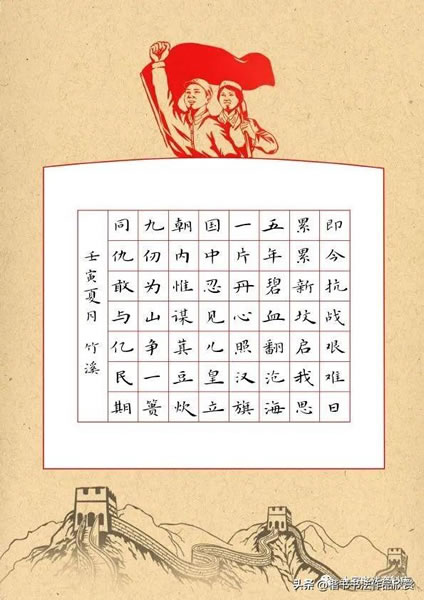 即今抗战艰难日
累累新坟启我思
五年碧血翻沧海
一片丹心照汉旗
国中忍见儿皇立
朝内惟谋萁豆炊
九仞为山争一篑
同仇敢与亿民期
壬寅夏月 竹溪
头条 @楷书书法作品欣赏